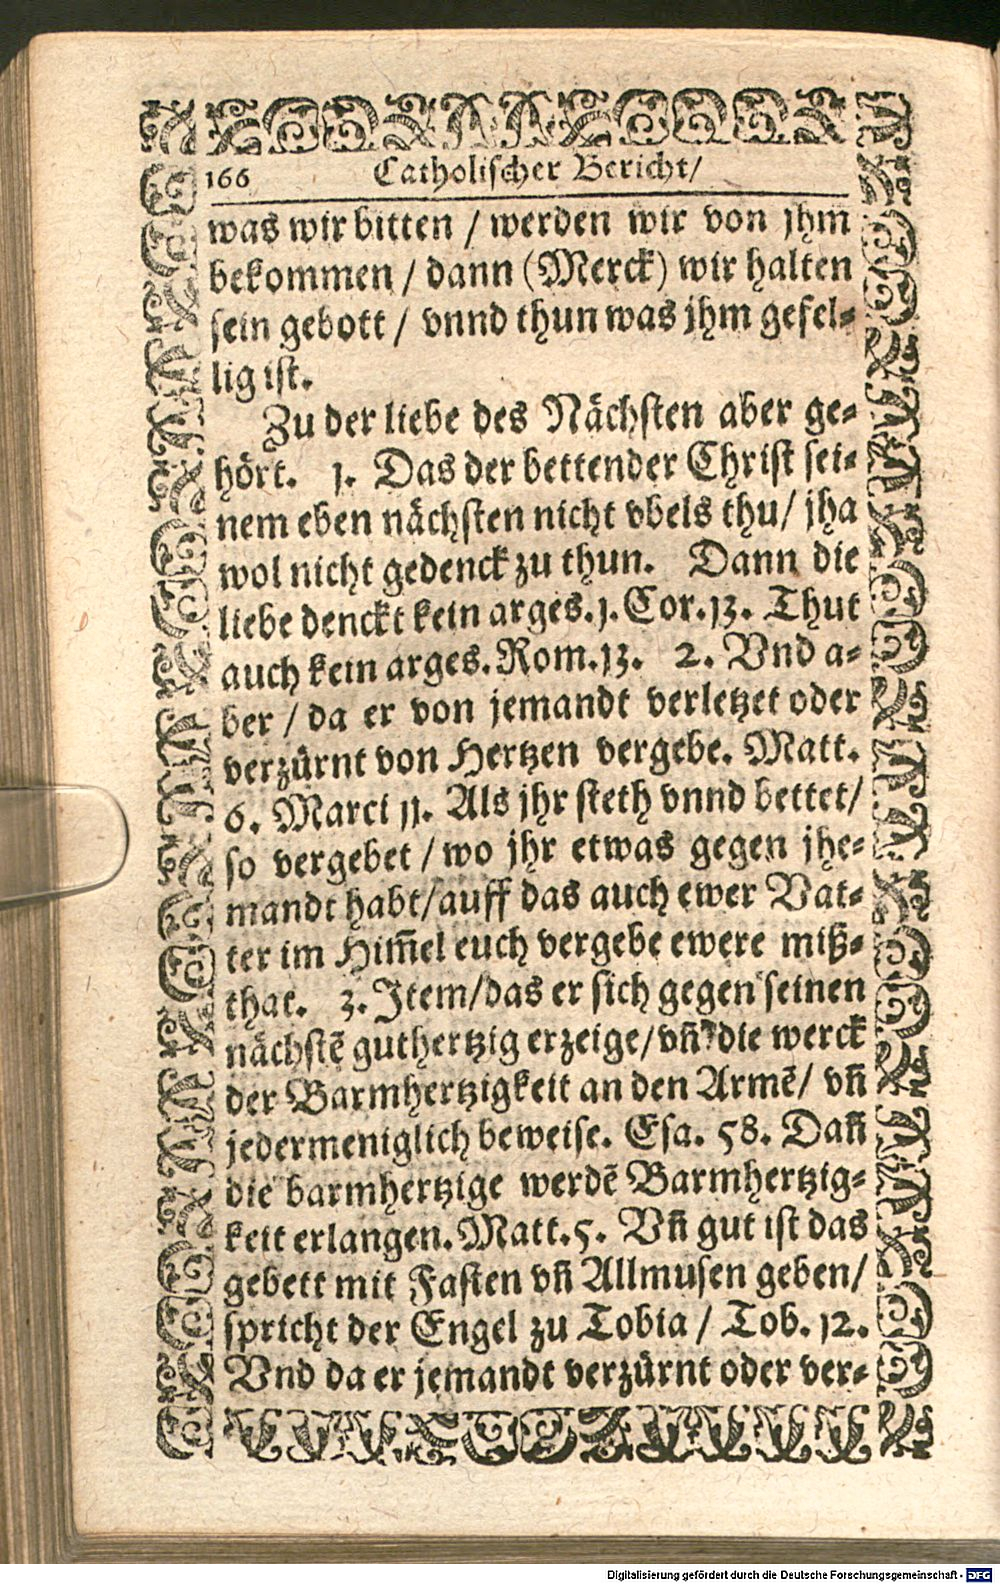 166 Catholischer Bericht/
was wir bitten / werden wir von jhm
bekommen / dann (Merck) wir halten
sein gebott / vnnd thun was jhm gefel⸗
lig ist.
Zu der liebe des Nächsten aber ge⸗
hört. 1. Das der bettender Christ sei⸗
nem eben nächsten nicht vbels thu/ jha
wol nicht gedenck zu thun. Dann die
liebe denckt kein arges. 1. Cor. 13. Thut
auch kein arges. Rom. 13. 2. Vnd a⸗
ber / da er von jemandt verletzet oder
verzürnt von Hertzen vergebe. Matt.
6. Marci 11. Als jhr steth vnnd bettet/
so vergebet / wo jhr etwas gegen jhe⸗
mandt habt/auff das auch ewer Vat⸗
ter im Him̃el euch vergebe ewere miß⸗
that. 3. Item/das er sich gegen seinen
nächstẽ guthertzig erzeige/vñ die werck
der Barmhertzigkeit an den Armẽ/ vñ
jedermeniglich beweise. Esa. 58. Dañ
die barmhertzige werdẽ Barmhertzig⸗
keit erlangen. Matt. 5. Vñ gut ist das
gebett mit Fasten vñ Allmusen geben/
spricht der Engel zu Tobia / Tob. 12.
Vnd da er jemandt verzürnt oder ver⸗
Digitalisierung gefördert durch die Deutsche Forschungsgemeinschaft - DFG